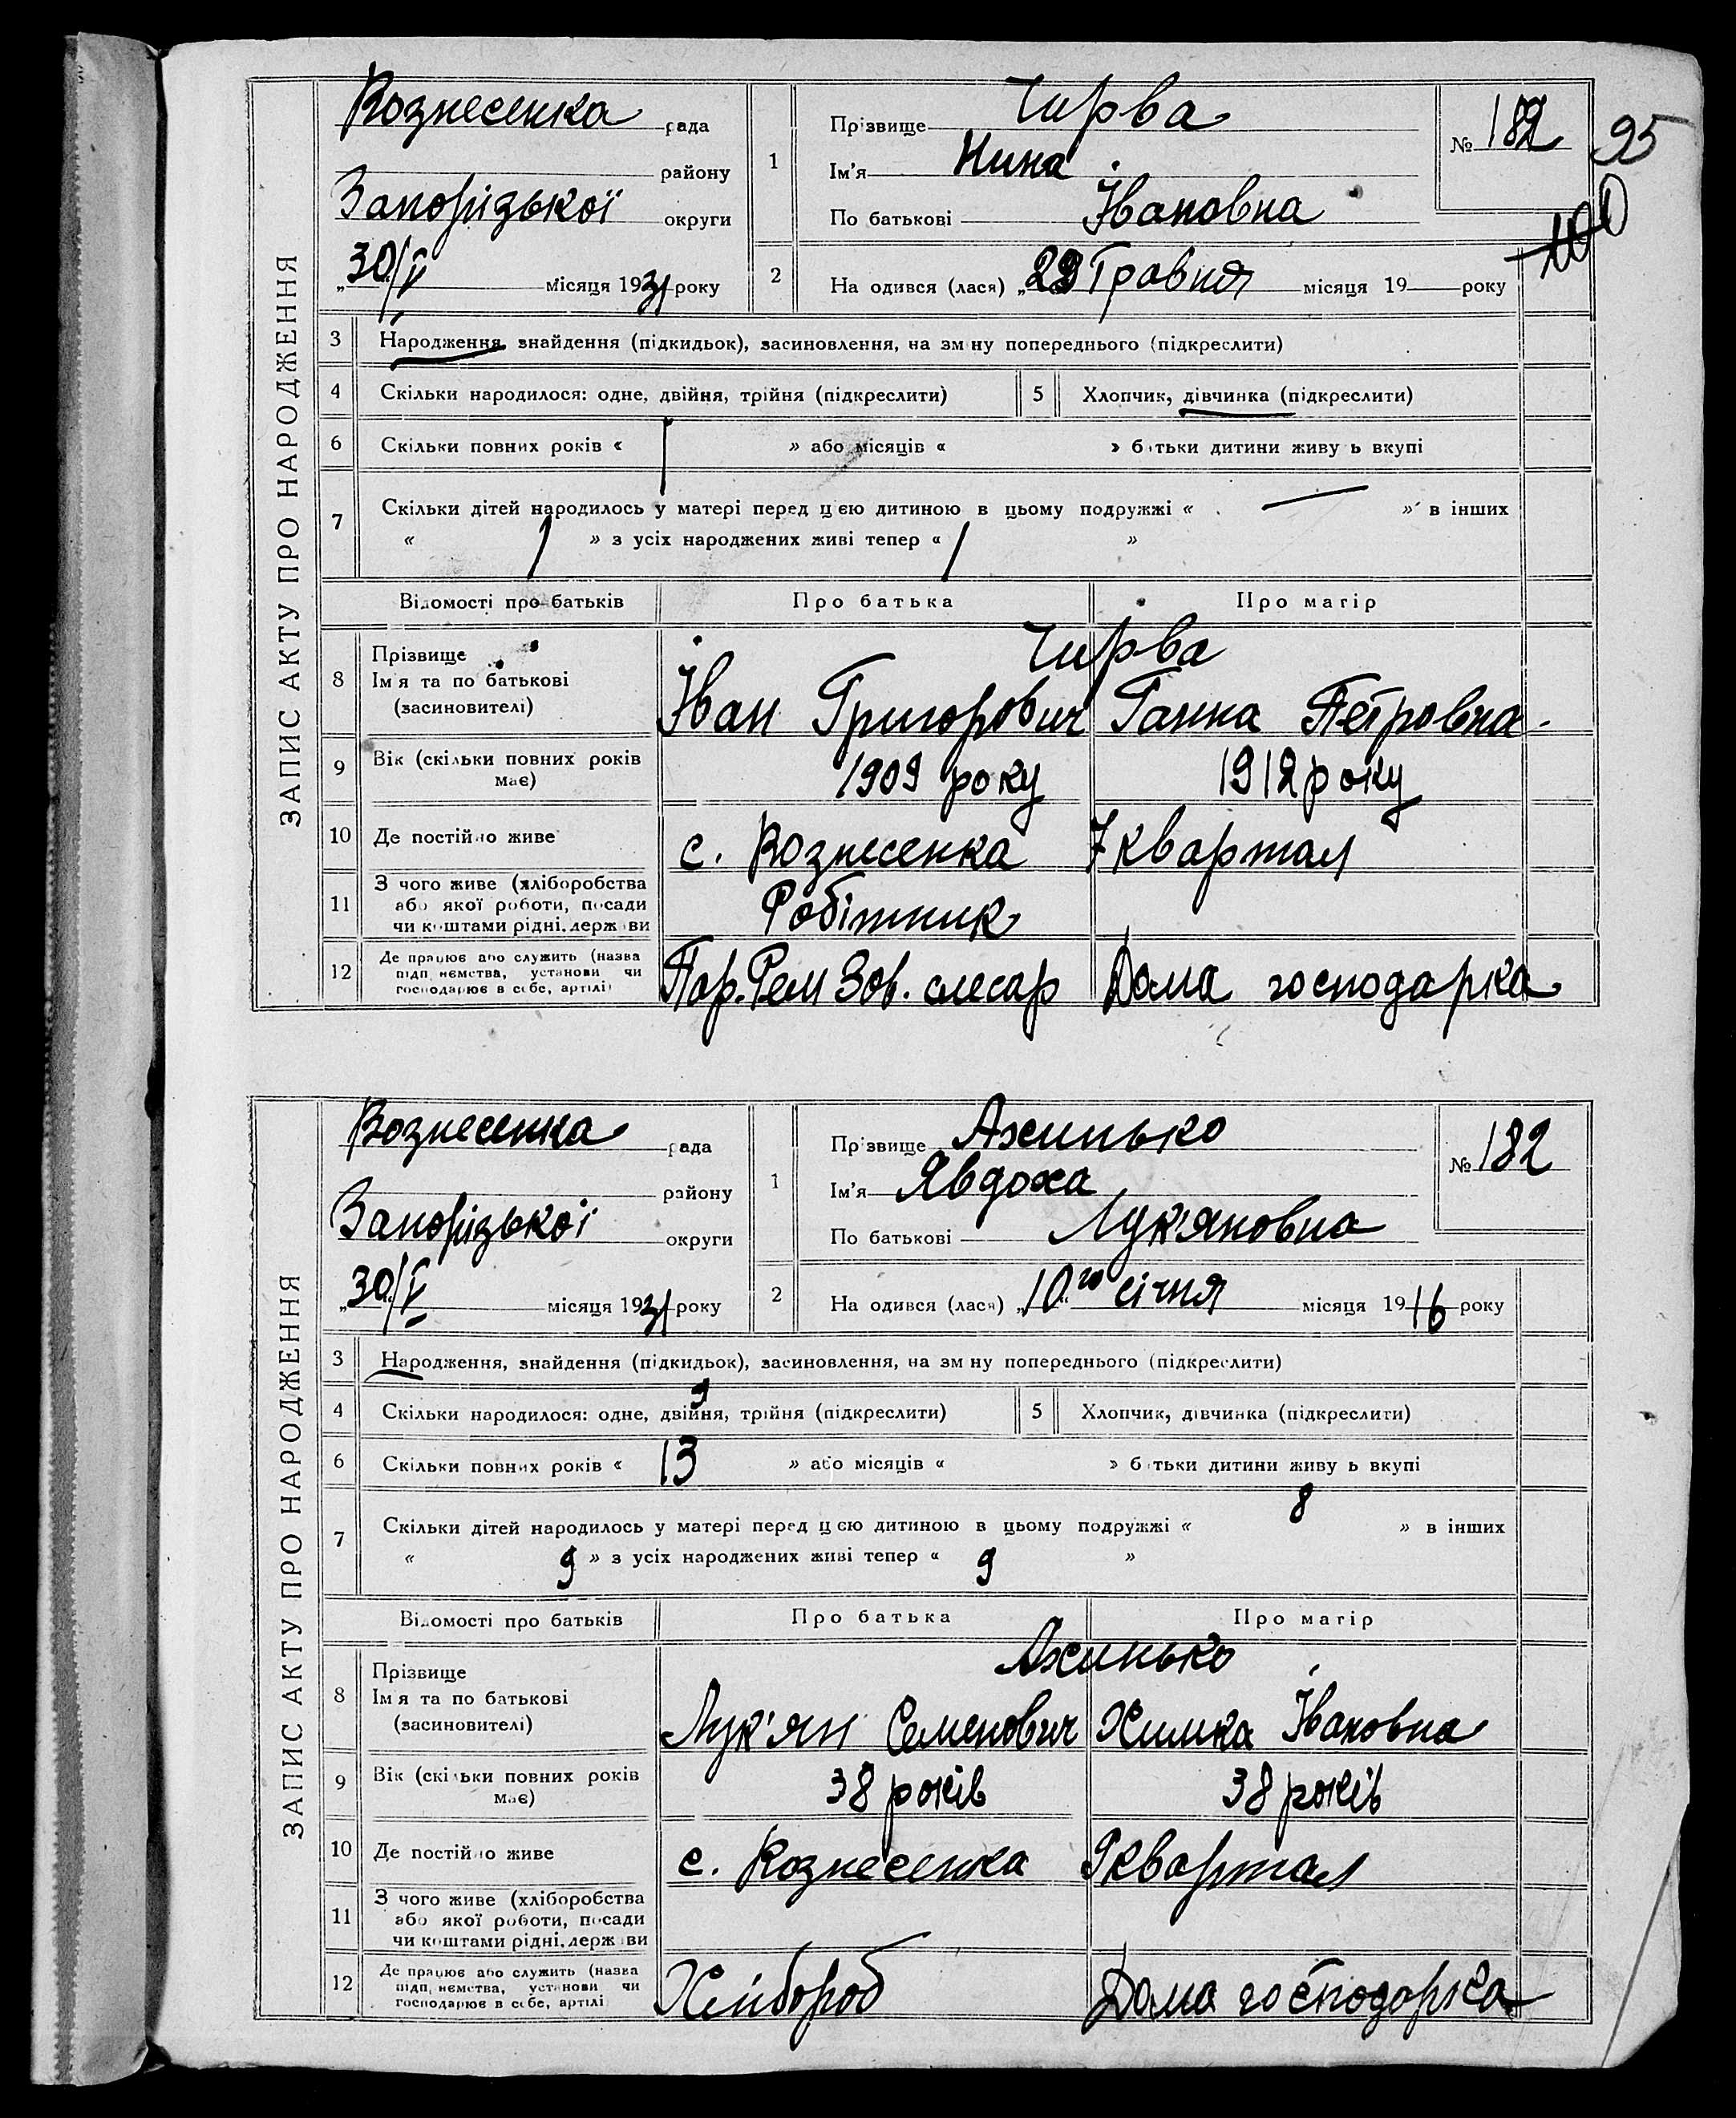 ЗАПИС АКТУ ПРО НАРОДЖЕННЯ
Вознесенка рада
району
Запорізької округи
„30/V місяця 1931 року
1
Прізвище Чирва
Ім'я Нина
По батькові Івановна
№ 182
95
100
2
На одився (лася) „29 Травня місяця 19 року
3 Народження, знайдення (підкидьок), засиновлення, на зм ну попереднього (підкреслити)
4 Скільки народилося: одне, двійня, трійня (підкреслити)
5 Хлопчик, дівчинка (підкреслити)
6 Скільки повних років « 1 » або місяців « » б тьки дитини живу ь вкупі
7 Скільки дітей народилось у матері перед цією дитиною в цьому подружжі « — » в інших
« 1 » з усіх народжених живі тепер « 1 »
Відомості про батьків Про батька Про матір
8 Прізвище
Ім я та по батькові
(засиновителі)
Чирва
Іван Григорович Ганна Петровна
9 Вік (скільки повних років
має)
1909 року 1912 року
10 Де постійно живе с. Вознесенка 7 квартал
11 З чого живе (хліборобства
або якої роботи, посади
чи коштами рідні, держ ви
Робітник
12 Де працює або служить (назва
підп немства, установи чи
господарює в себе, артілі)
Пар. Рем Зов. слесар Дома господарка
ЗАПИС АКТУ ПРО НАРОДЖЕННЯ
Вознесенка рада
району
Запорізької округи
„30/V місяця 1931 року
1
Пр звище Ахинько
Ім'я Явдоха
По батькові Лук'яновна
№ 182
2
На одився (лася) „10го січня місяця 1916 року
3 Народження, знайдення (підкидьок), засиновлення, на зм ну попереднього (підкреслити)
4 Скільки народилося: одне, двійня, трійня (підкреслити)
5 Хлопчик, дівчинка (підкреслити)
6 Скільки повних років « 13 » або місяців « » б тьки дитини живу ь вкупі
7 Скільки дітей народилось у матері перед цією дитиною в цьому подружжі « 8 » в інших
« 9 » з усіх народжених живі тепер « 9 »
Відомості про батьків Про батька Про матір
8 Прізвище
Ім я та по батькові
(засиновителі)
Ахинько
Лук'ян Семенович Химка Івановна
9 Вік (скільки повних років
має)
38 років 38 років
10 Де постійно живе с. Вознесенка 9 квартал
11 З чого живе (хліборобства
або якої роботи, посади
чи коштами рідні, держ ви
12 Де працює або служить (назва
підп немства, установи чи
господарює в себе, артілі
Хлібороб Дома господорка